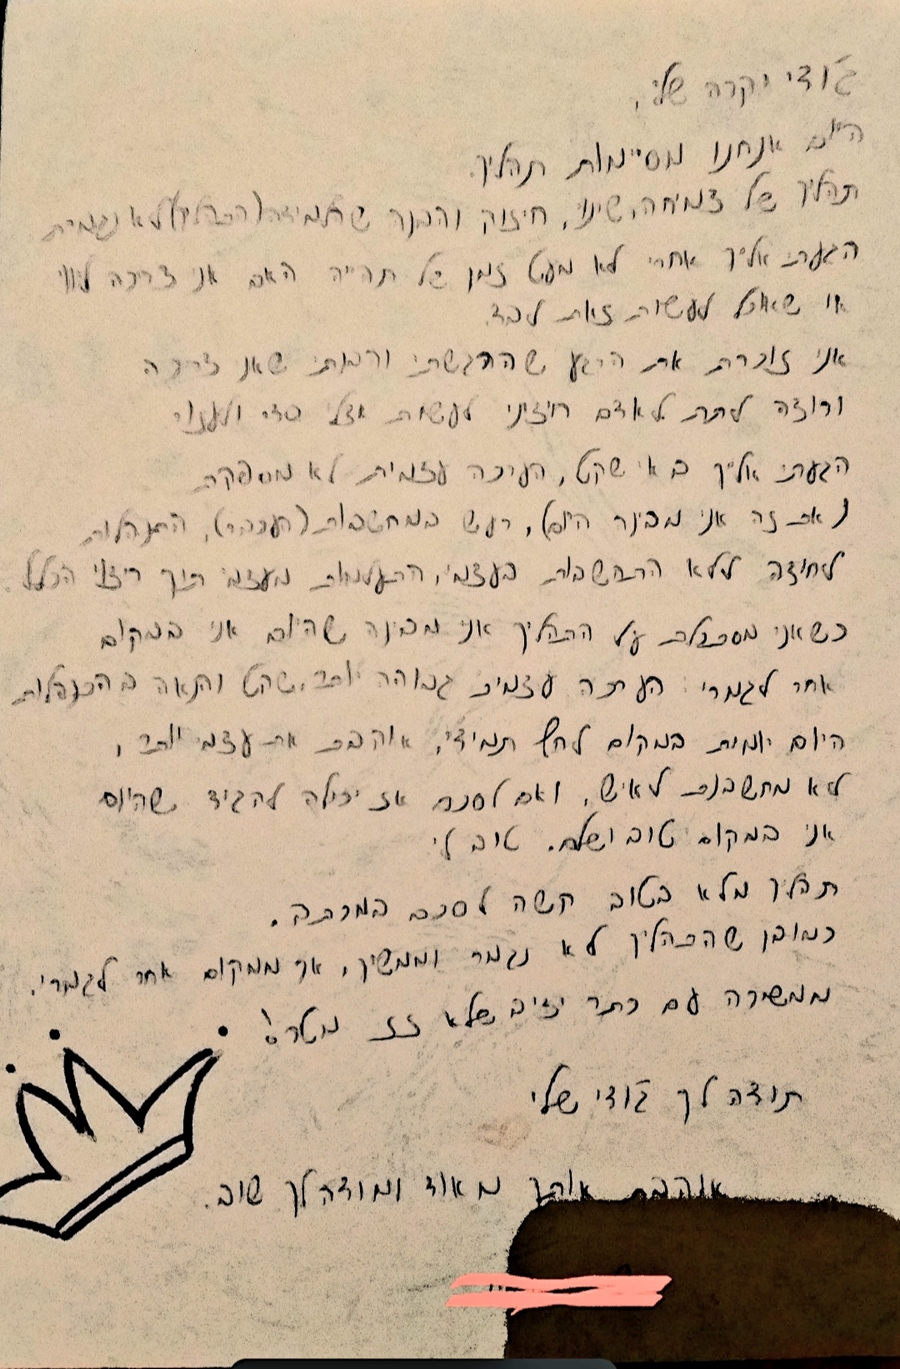 ג'ודי יקרה שלי,
היום אנחנו מסיימות תהליך.
תהליך של צמיחה, שינוי, חיזוק והבנה שתמיד (התהליך) לא נגמרת
הגעתי אליך אחרי לא מעט זמן של תהייה האם אני צריכה ליווי
או שאוכל לעשות זאת לבד.
אני זוכרת את הרגע שהרגשתי והבנתי שאני צריכה
ורוצה לתת לאדם חיצוני לעשות אצלי סדר ולעזור
הגעתי אליך באי שקט, הערכה עצמית לא מספקת
(את זה אני מבינה היום), רעש במחשבות (העכבר), התנהלות
לחוצה ללא התחשבות בעצמי, התעלמות מעצמי תוך ריצוי הכלל.
כשאני מסתכלת על התהליך אני מבינה שהיום אני במקום
אחר לגמרי. הערכה עצמית גבוהה יותר, שקט והנאה בהתנהלות
היום יומית במקום לחץ תמידי, אוהבת את עצמי יותר,
לא מתחשבנת לאיש, ואם לסכם אז יכולה להגיד שהיום
אני במקום טוב ושלם. טוב לי
תהליך מלא בטוב קשה לסכם במכתב.
כמובן שהתהליך לא נגמר וממשיך, אך ממקום אחר לגמרי.
ממשיכה עם כתר יציב שלא זז מטר!
תודה לך ג'ודי שלי
אוהבת אותך מאוד ומודה לך שוב.